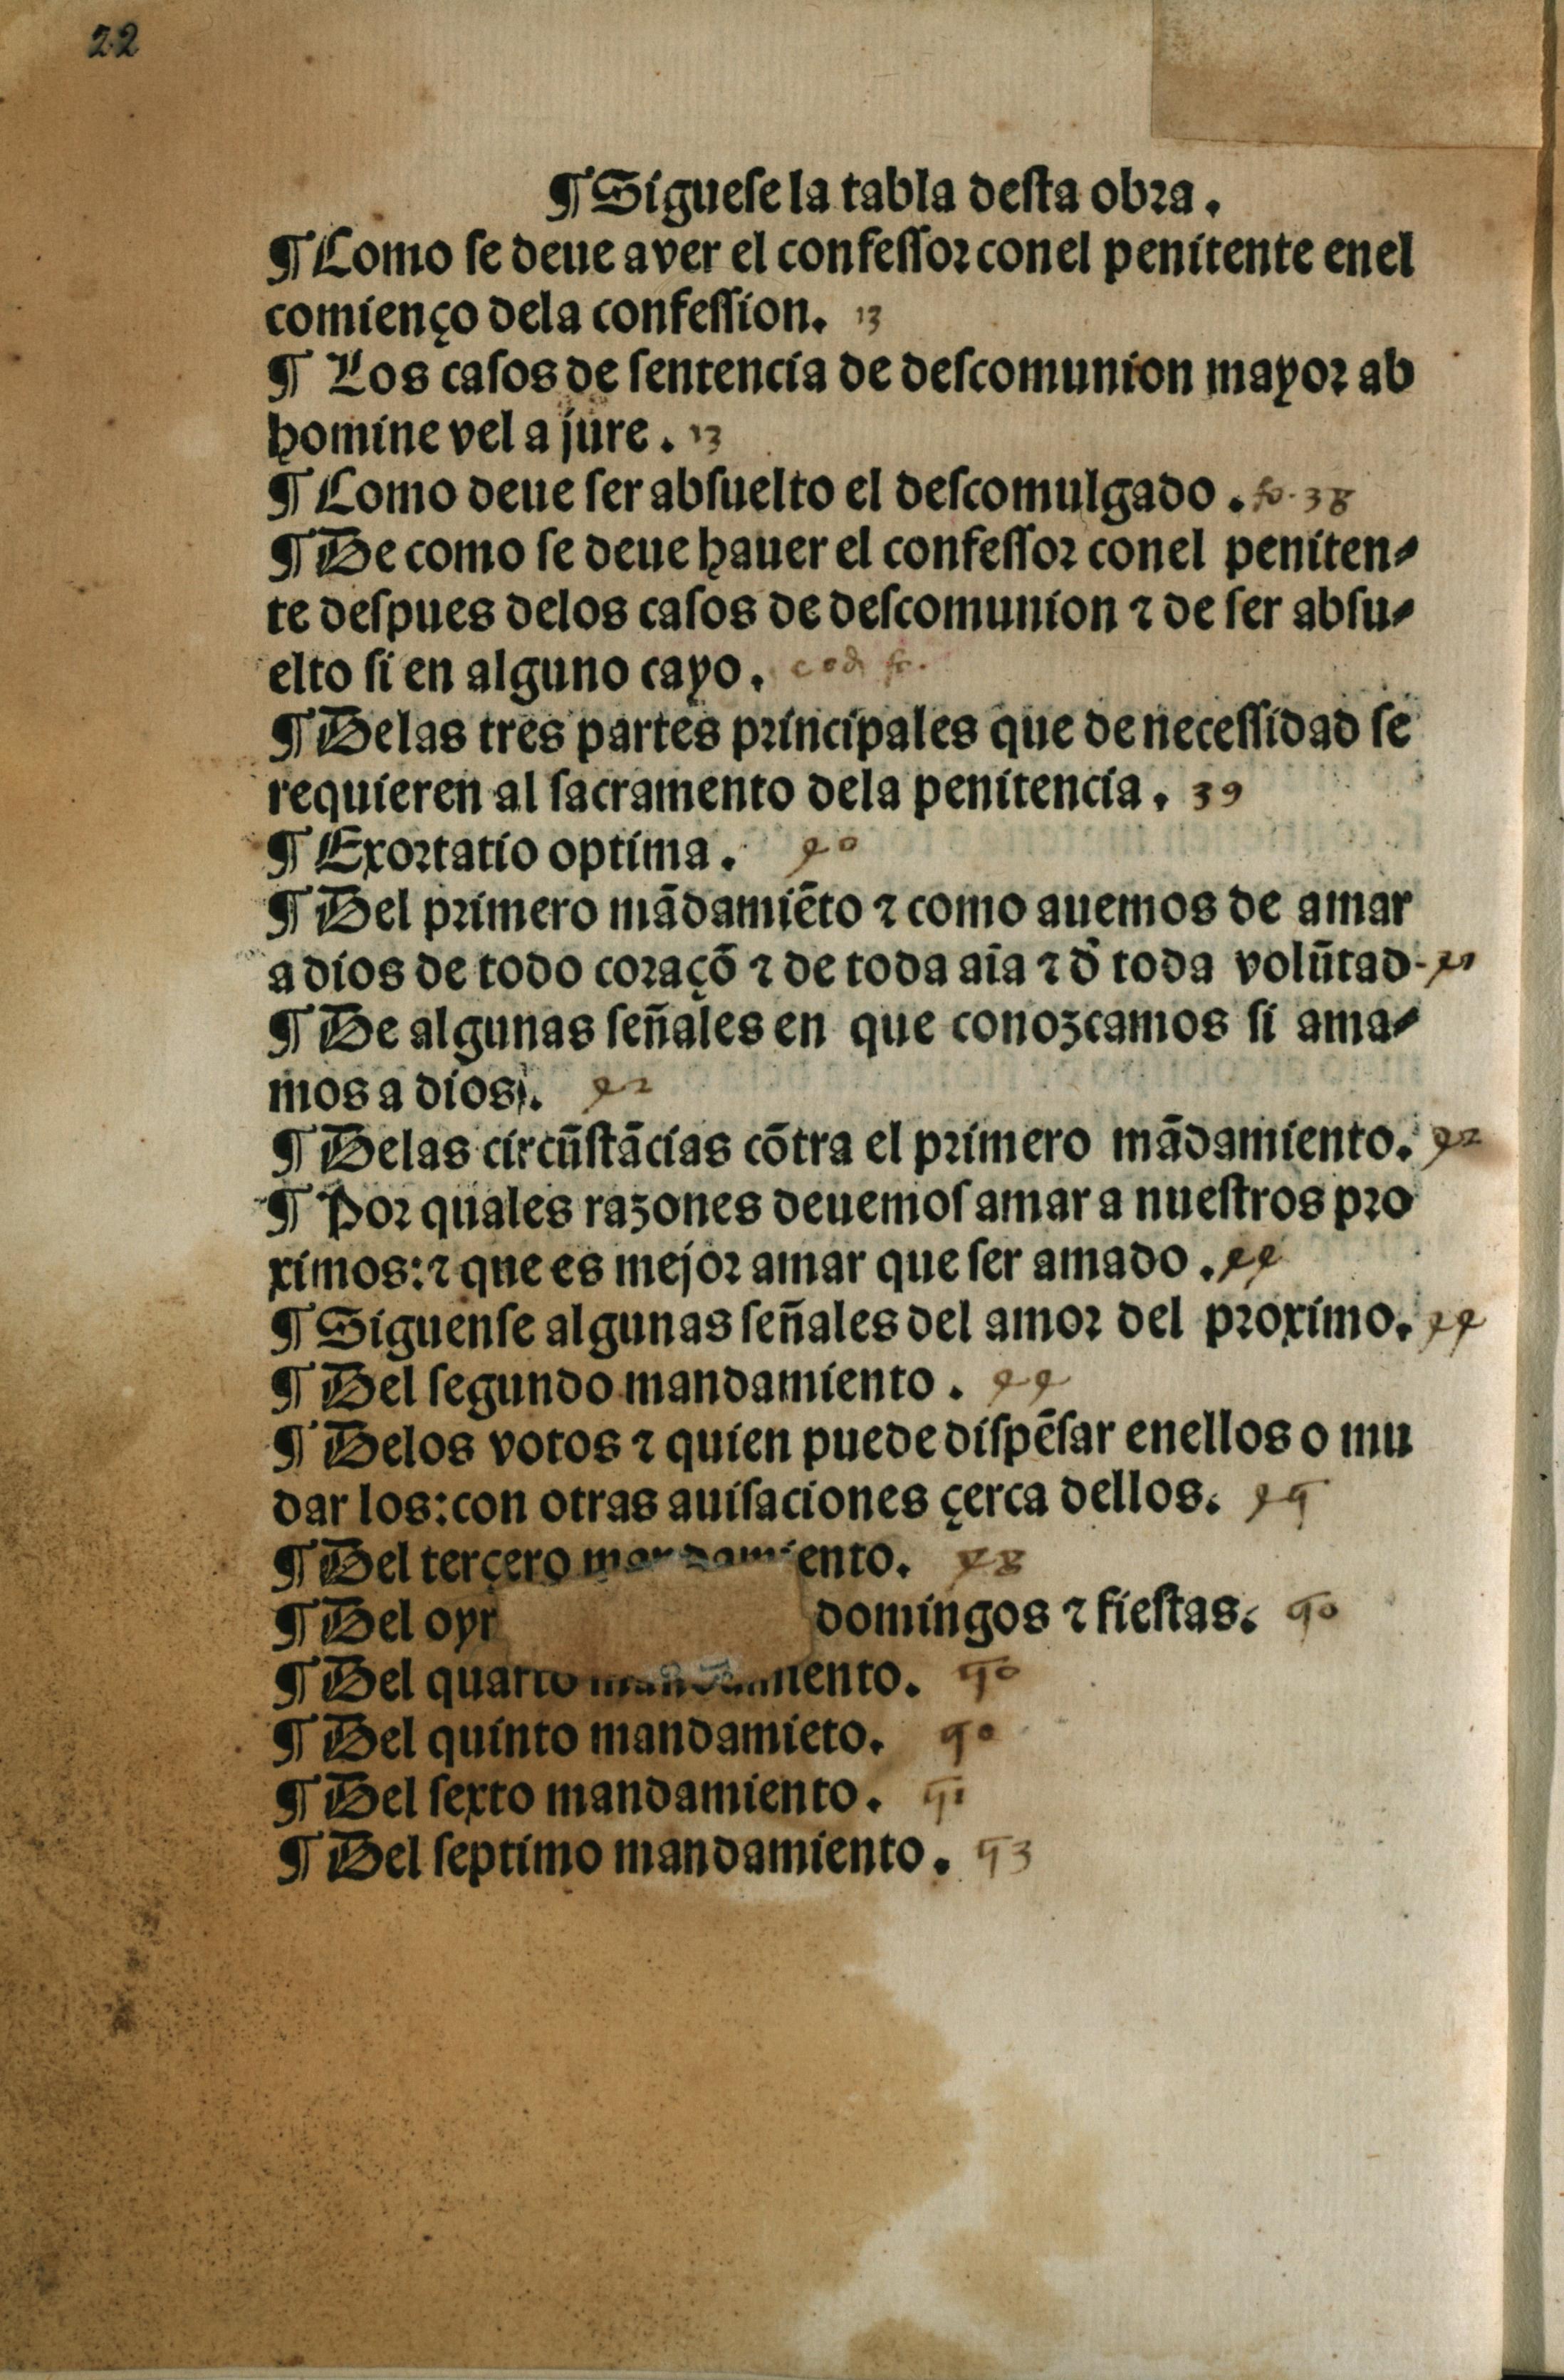 22
¶ Siguese la tabla desta obra.
¶ Como se deue aver el confessor conel penitente enel
comienço dela confession. 13
¶ Los casos de sentencia de descomunion mayor ab
homine vel a jure. 13
¶ Como deue ser absuelto el descomulgado. fo. 38
¶ De como se deue hauer el confessor conel peniten-
te despues delos casos de descomunion ⁊ de ser absu-
elto si en alguno cayo. eod. fo.
¶ Delas tres partes principales que de necessidad se
requieren al sacramento dela penitencia. 39
¶ Exortatio optima. 40
¶ Del primero mādamiēto ⁊ como auemos de amar
a dios de todo coraçō ⁊ de toda aīa ⁊ d̄ toda volūtad. 41
¶ De algunas señales en que conozcamos si ama-
mos a dios. 42
¶ Delas circūstācias cōtra el primero mādamiento. 42
¶ Por quales razones deuemos amar a nuestros pro
ximos: ⁊ que es mejor amar que ser amado. 44
¶ Siguense algunas señales del amor del proximo. 44
¶ Del segundo mandamiento. 44
¶ Delos votos ⁊ quien puede dispēsar enellos o mu
dar los: con otras auisaciones çerca dellos. 45
¶ Del terçero mandamiento. 48
¶ Del oyr domingos ⁊ fiestas. 50
¶ Del quarto mandamiento. 50
¶ Del quinto mandamieto. 50
¶ Del sexto mandamiento. 51
¶ Del septimo mandamiento. 53